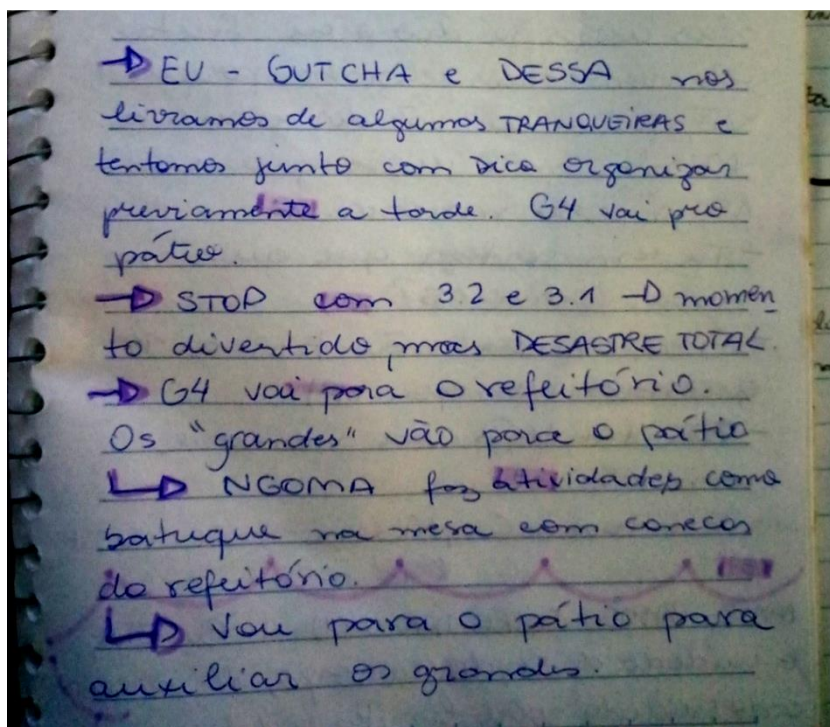 → EU - GUTCHA e DESSA nos
livramos de algumas TRANQUEIRAS e
tentamos junto com Dica organizar
previamente a tarde. G4 vai pro
pátio.
→ STOP com 3.2 e 3.1 → momen
to divertido, mas DESASTRE TOTAL.
→ G4 vai para o refeitório.
Os "grandes" vão para o pátio
↳ NGOMA faz atividades como
batuque na mesa com canecas
do refeitório.
↳ Vou para o pátio para
auxiliar os grandes.